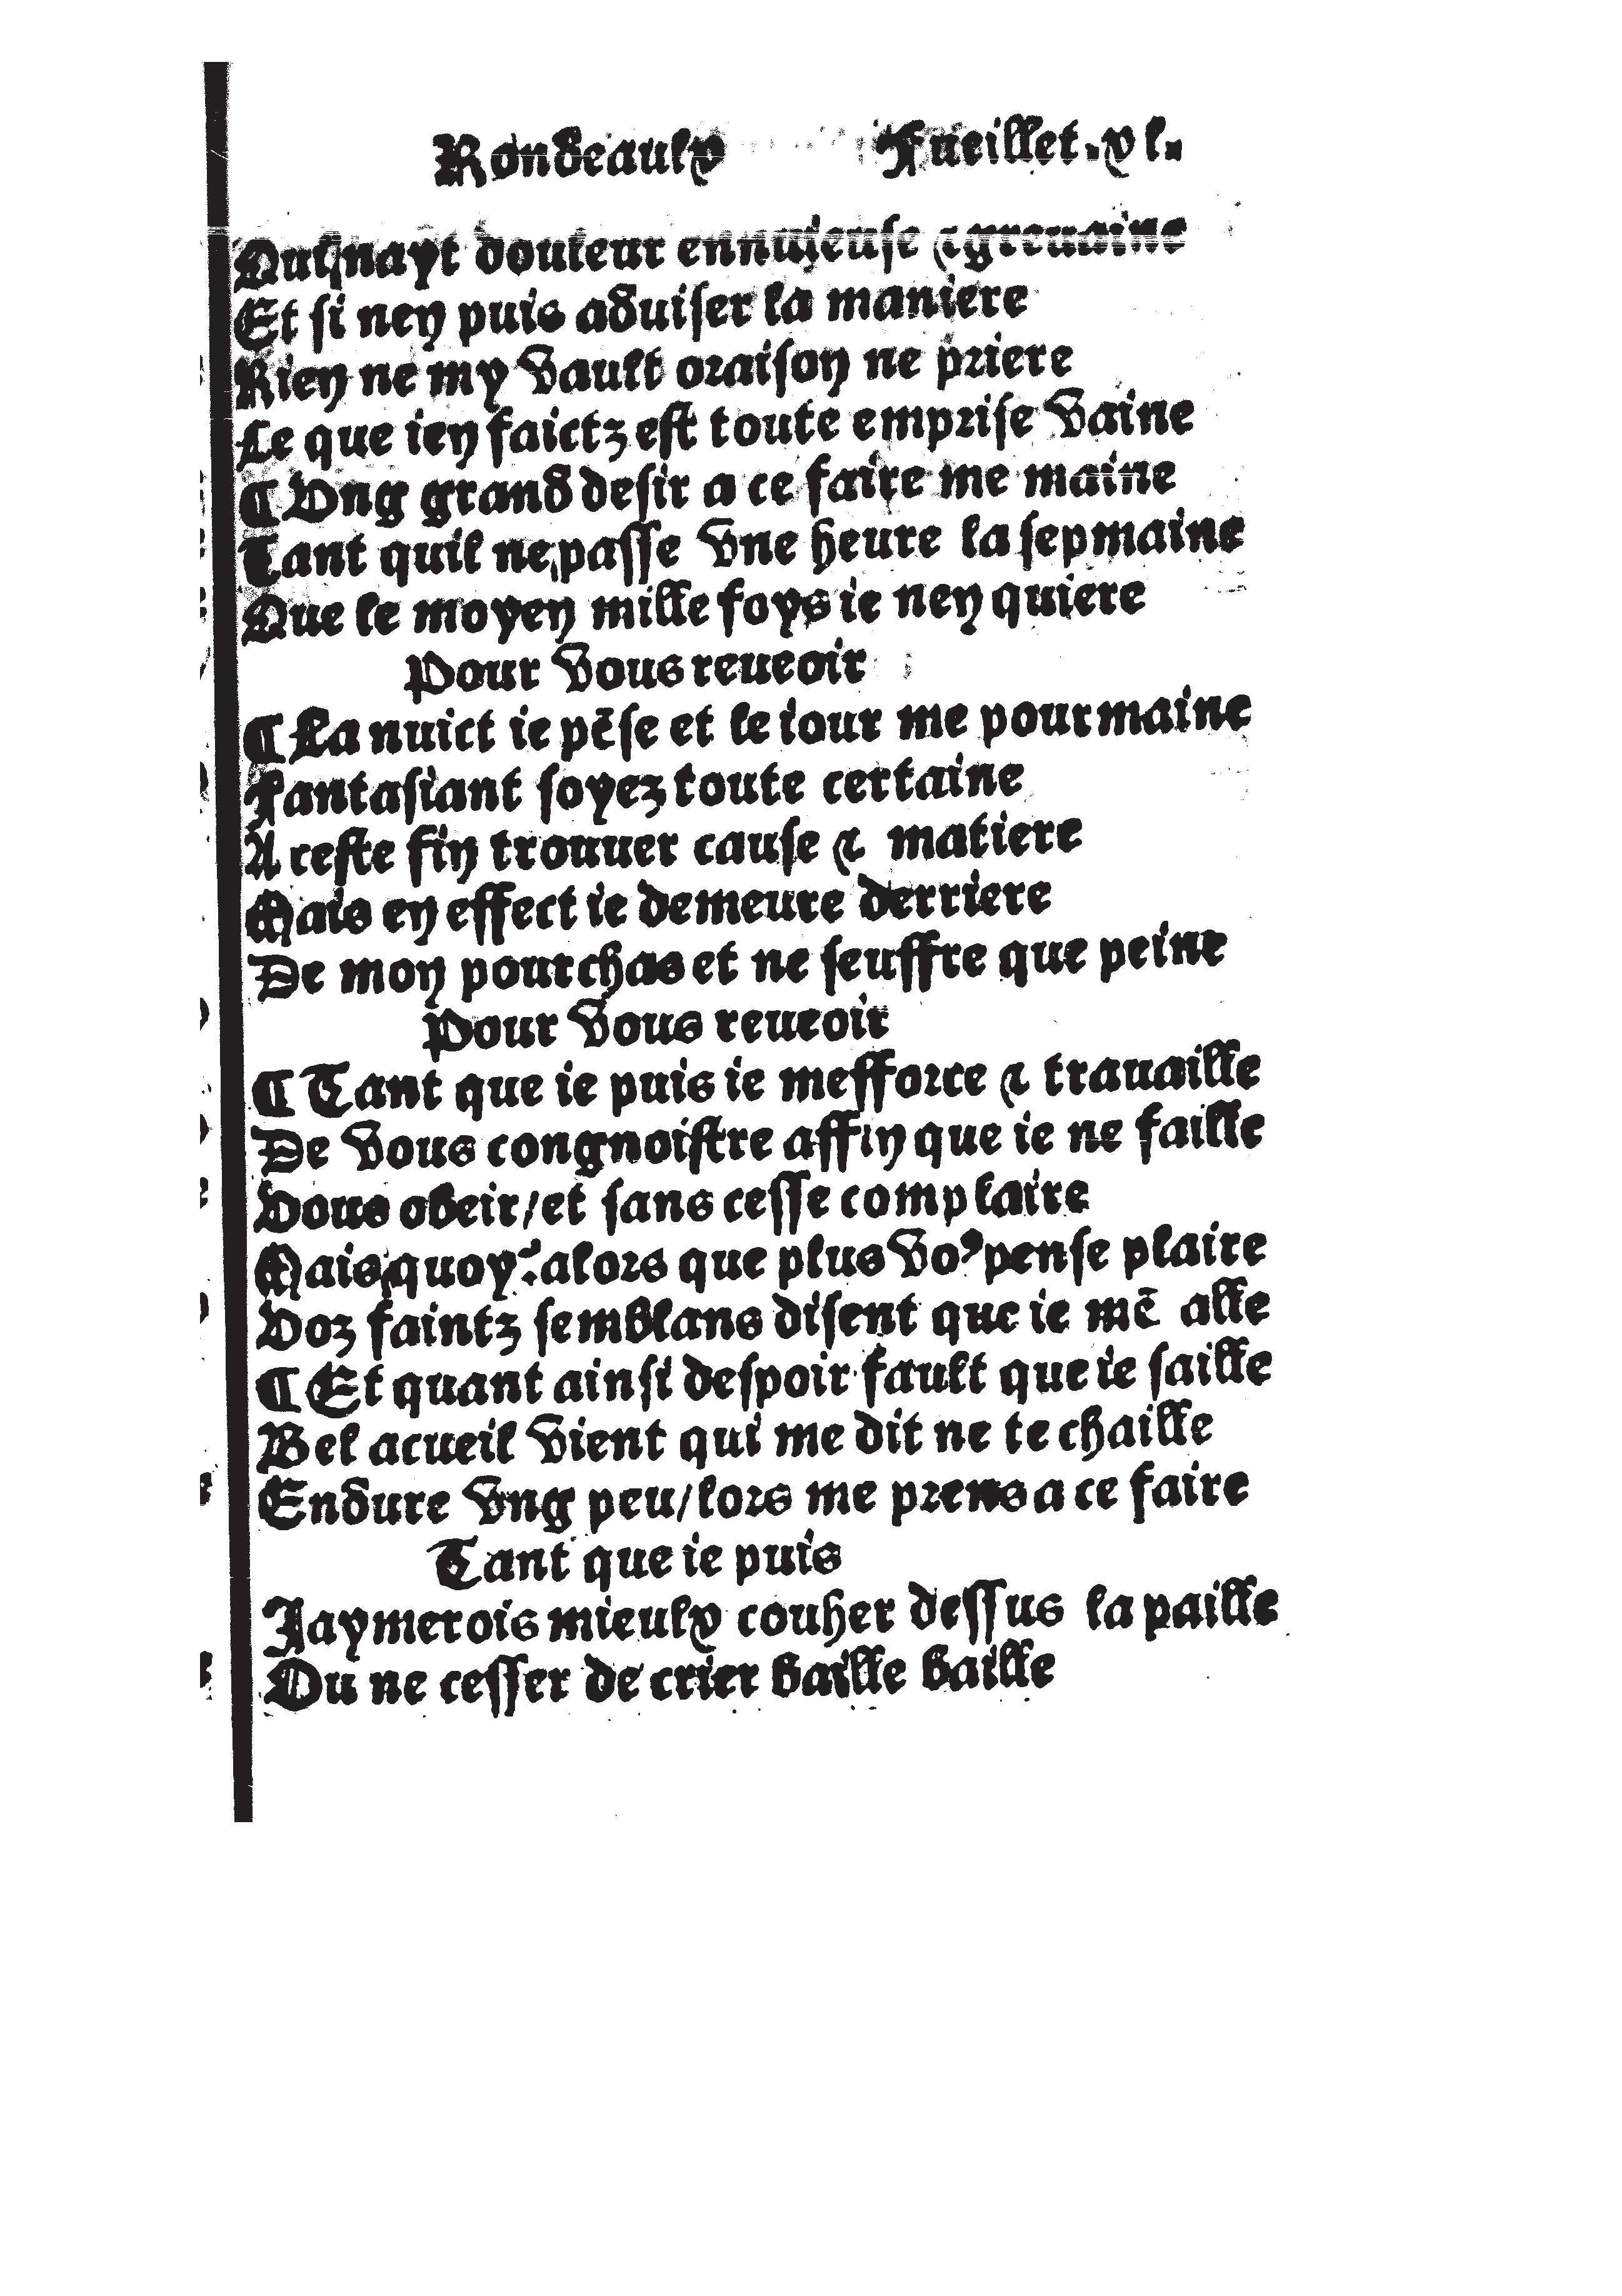 Rondeaulx Fueillet .xl.
Quil nayt douleur ennuieuse ⁊ greuaine
Et si nen puis aduiser la maniere
Rien ne my vault oraison ne priere
Ce que ien faictz est toute emprise vaine
¶ Vng grand desir a ce faire me maine
Tant quil ne passe vne heure la sepmaine
Que le moyen mille foys ie nen quiere
Pour vous reueoir
¶ La nuict ie pēse et le iour me pourmaine
Fantasiant soyez toute certaine
A ceste fin trouuer cause ⁊ matiere
Mais en effect ie demeure derriere
De mon pourchas et ne seuffre que peine
Pour vous reueoir
¶ Tant que ie puis ie mefforce ⁊ trauaille
De vous congnoistre affin que ie ne faille
Vous obeir/et sans cesse complaire
Mais quoy? alors que plus voꝰ pense plaire
Voz faintz semblans disent que ie mē alle
¶ Et quant ainsi despoir fault que ie saille
Bel acueil vient qui me dit ne te chaille
Endure vng peu/lors me prens a ce faire
Tant que ie puis
Jaymerois mieulx couher dessus la paille
Ou ne cesser de crier baille baille